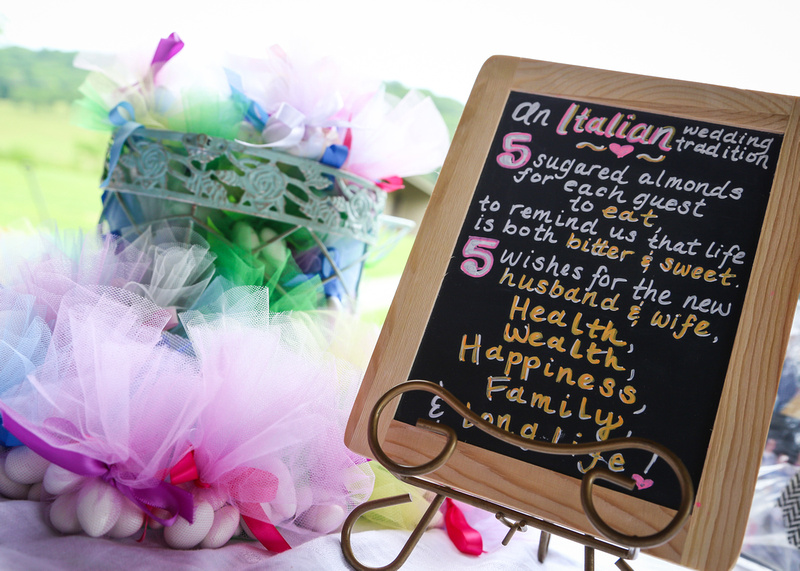 an Italian wedding tradition
5 sugared almonds
for each guest
to eat
to remind us that life
is both bitter & sweet.
5 wishes for the new
husband & wife,
Health,
Wealth,
Happiness,
Family,
& Long Life!